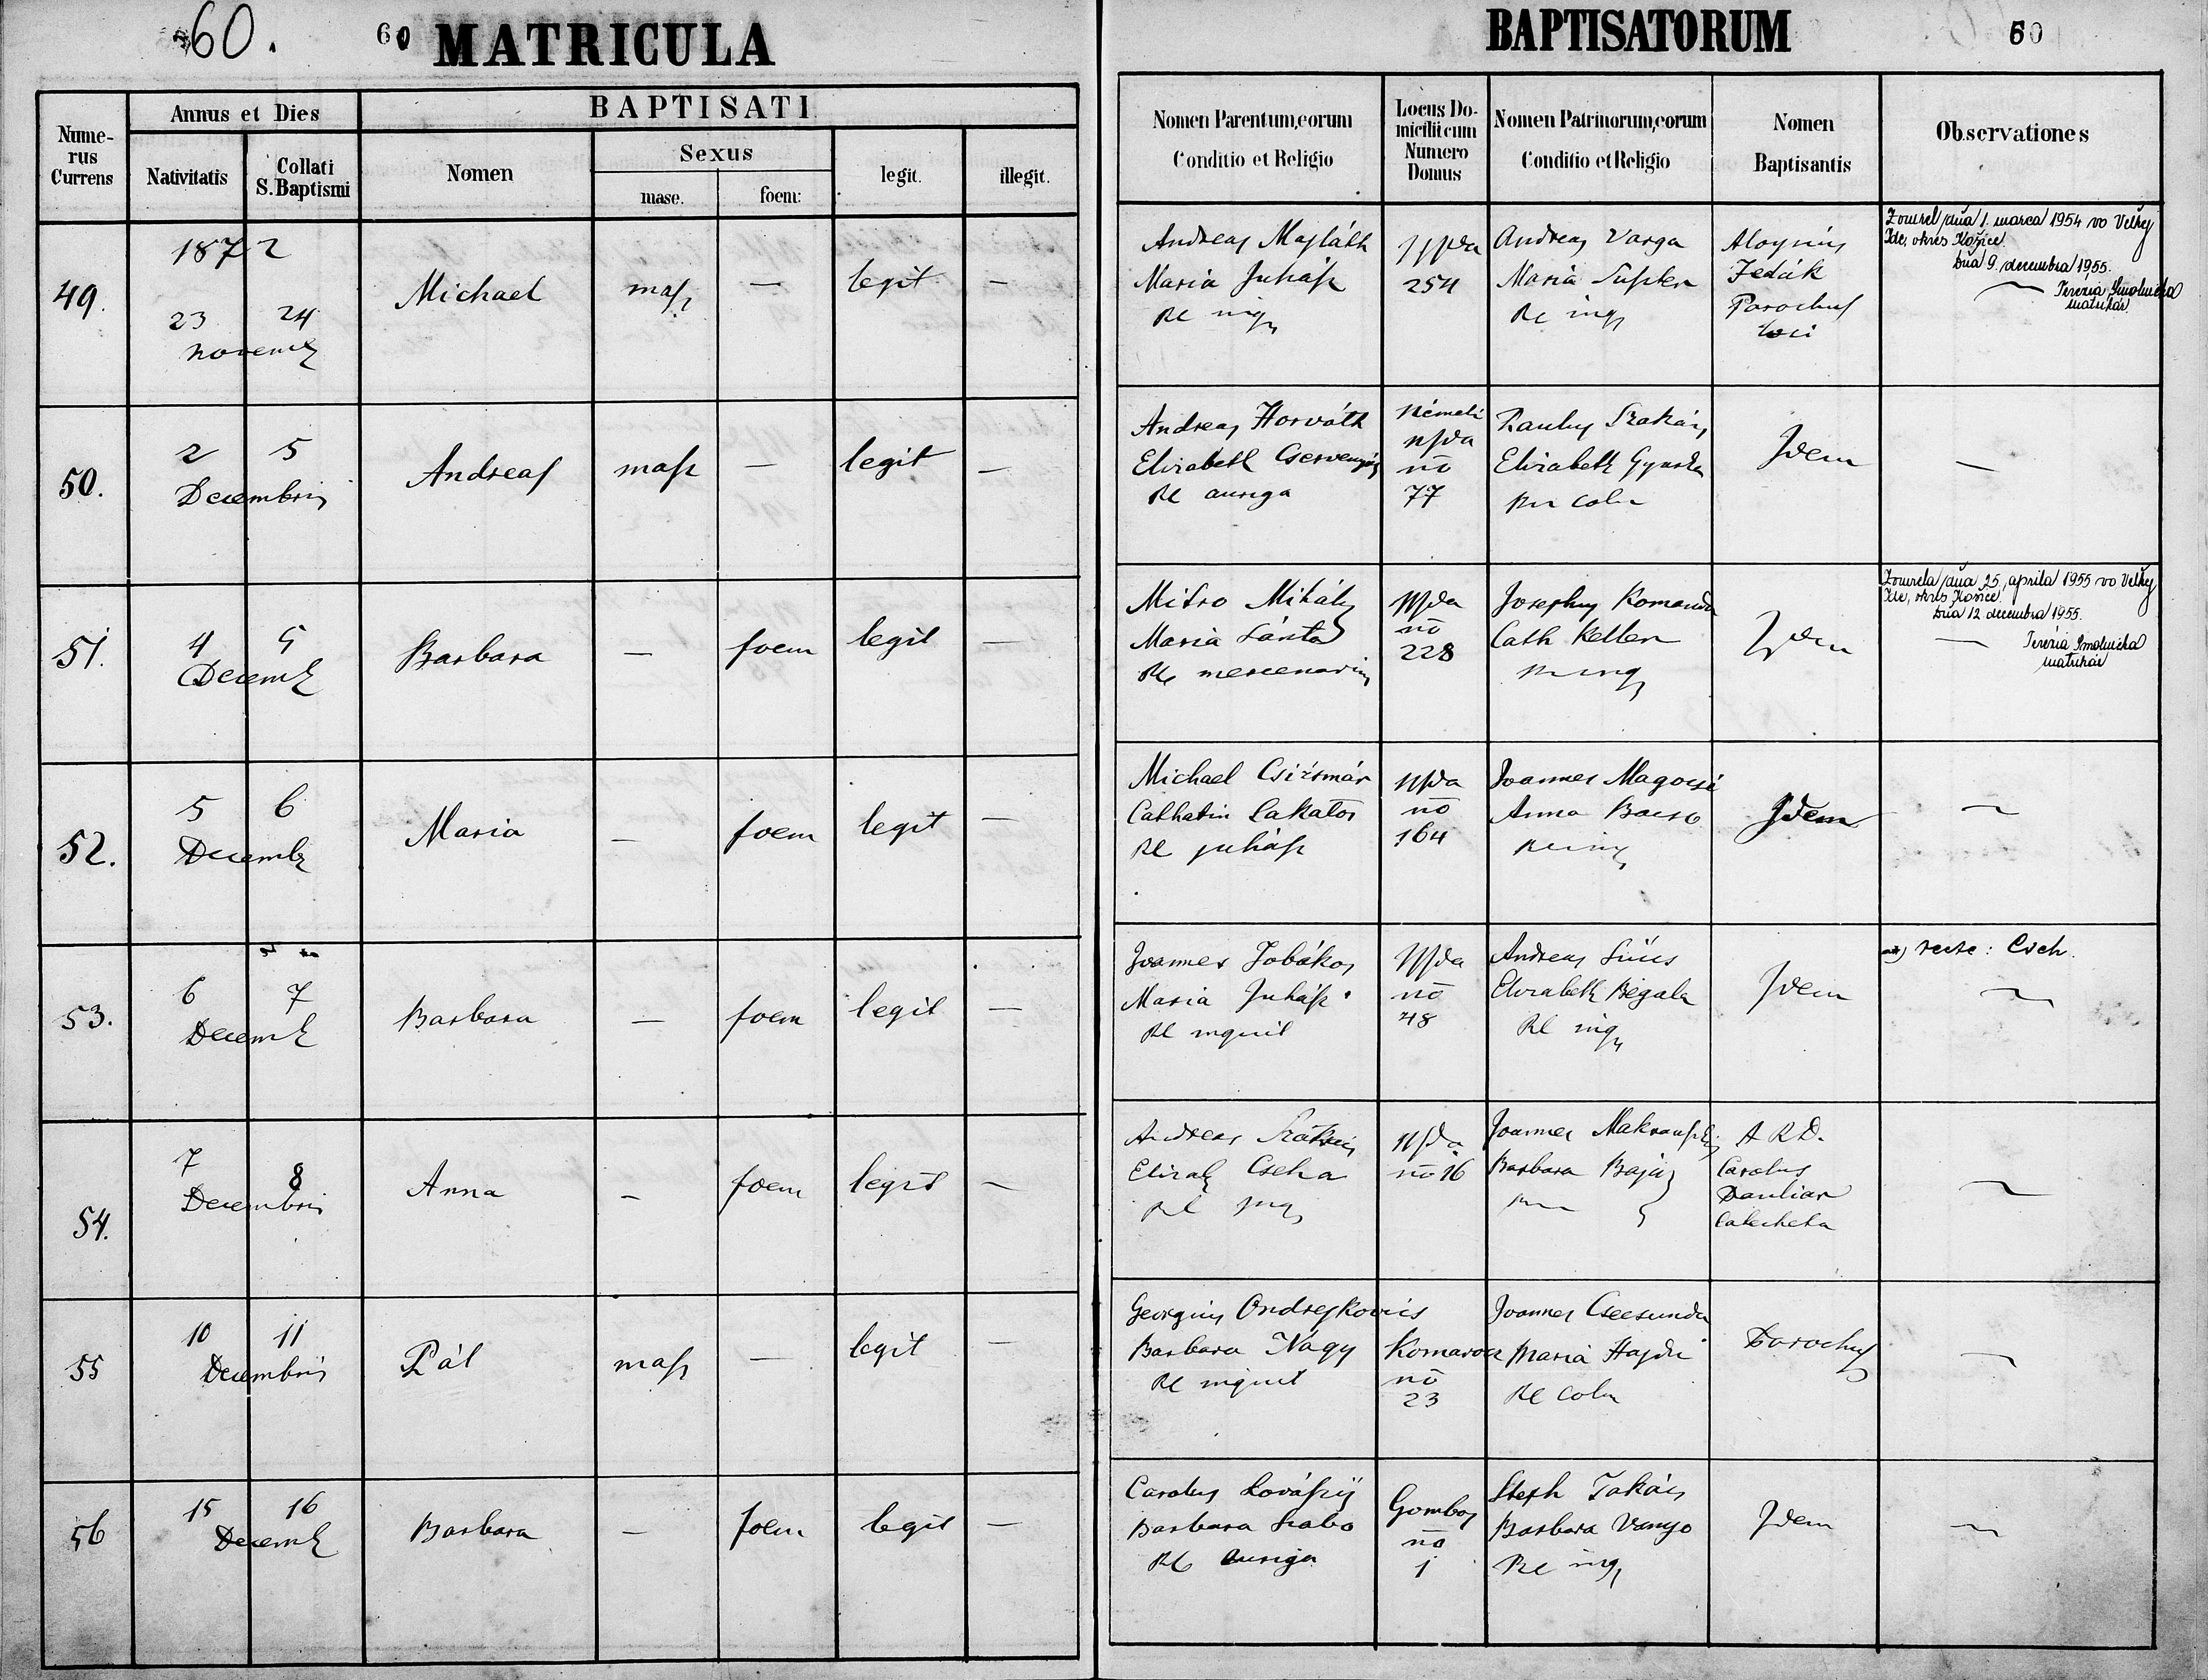 60.
60 MATRICULA
BAPTISATORUM 60
Numerus Currens
Annus et Dies
Nativitatis
Collati S. Baptismi
BAPTISATI
Nomen
Sexus
masc.
foem:
legit.
illegit.
Nomen Parentum, eorum Conditio et Religio
Locus Domicilii cum Numero Domus
Nomen Patrinorum, eorum Conditio et Religio
Nomen Baptisantis
Observationes
49.
1872
23 24
Novemb
Michael
masc
—
legit
—
Andreas Majláth
Maria Juhász
RC inq
254
Andreas Varga
Maria
RC inq
Aloysius
Jedák
Parochus
loci
Zomrel dňa 1. marca 1954 vo Veľkej
Ide, okres Košice.
Dňa 9. decembra 1955.
Terézia Smolnická
matrikár
50.
2 5
Decembris
Andreas
masc
—
legit
—
Andreas Horváth
Elisabeth
RC auriga
Németi
no
77
Paulus Szakács
Elisabeth
RC col
Idem
—
51.
4 5
Decemb
Barbara
—
foem
legit
—
Mitro Mihály
Maria Sánta
RC mercenarius
no
228
Josephus Komanda
Cath Keller
RC inq
Idem
Zomrela dňa 25. apríla 1955 vo Veľkej
Ide, okres Košice.
Dňa 12 decembra 1955.
— Terézia Smolnická
matrikár
52.
5 6
Decemb
Maria
—
foem
legit
—
Michael Csizmár
Catharin Lakatos
RC juhász
no
164
Joannes Magocsi
Anna Bacso
RC inq
Idem
—
53.
6 7
Decemb
Barbara
—
foem
legit
—
Joannes Jobákos
Maria Juhász
RC inquil
no
48
Andreas Szücs
Elisabeth Begala
RC inq
Idem
recte: Cseh.
—
54.
7 8
Decembris
Anna
—
foem
legit
—
Andreas Szakács
Elisab Cseha
RC inq
no 16
Joannes
Barbara
A R D.
Carolus
Pauliar
Catecheta
—
55
10 11
Decembris
Pál
masc
—
legit
—
Georgius Ondrejkovics
Barbara Nagy
RC inquil
Komaroc
no
23
Joannes
Maria Hajdu
RC col
Parochus
—
56
15 16
Decemb
Barbara
—
foem
legit
—
Carolus
Barbara Szabo
RC auriga
Gombos
no
1
Steph Takács
Barbara Vanyo
RC inq
Idem
—